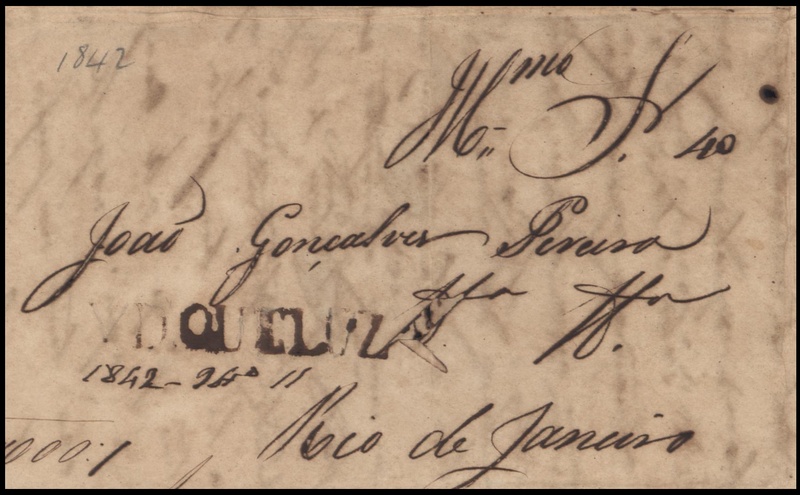 1842
Mmo Sr 40
João Gonçalves Pereira
V. D. QUELUZ
1842 - 9bro 11
Rio de Janeiro
000:/